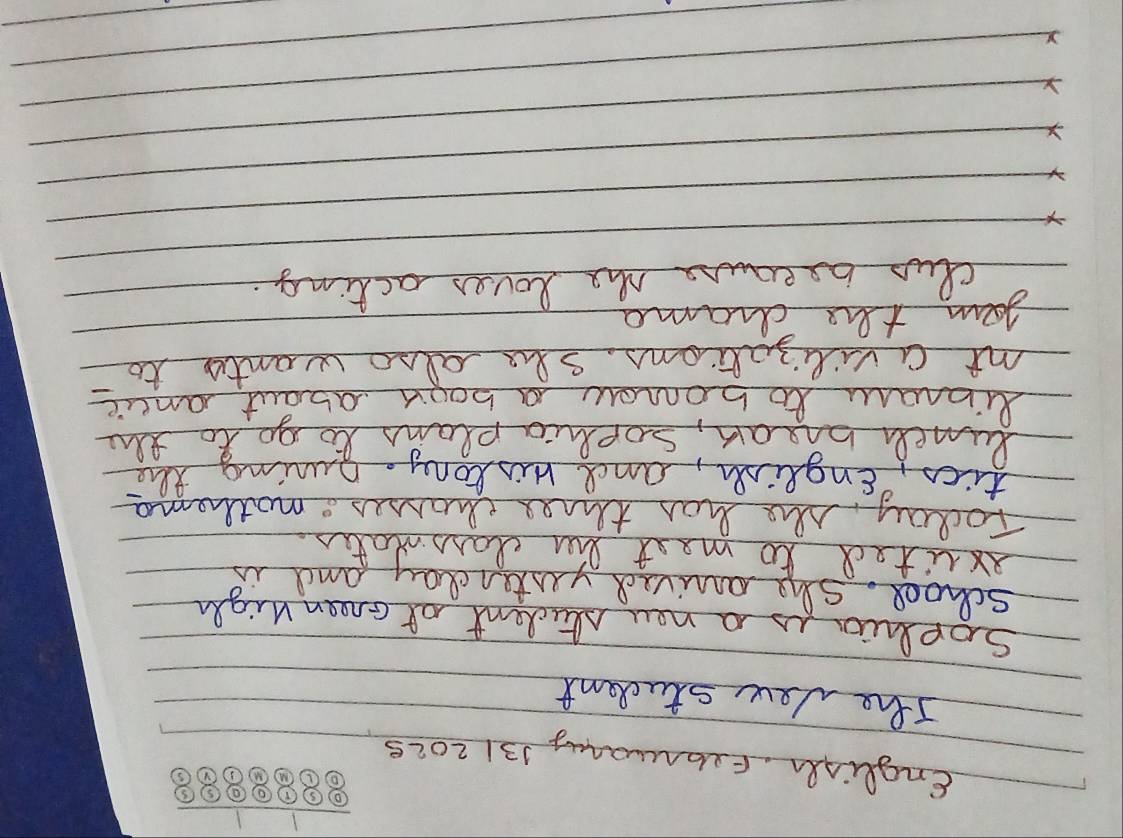 D S T Q Q S S
D L M M J V S
English. February 13/2025
The New student
Sophia is a new student at Green High
School. She arrived yesterday and is
exited to meet her classmates.
Today, she has three classes: mathema-
tics, English, and History. During the
lunch break, Sophia plans to go to the
library to borrow a book about ancie-
nt civilizations. She also wants to
join the drama
club because she loves acting.